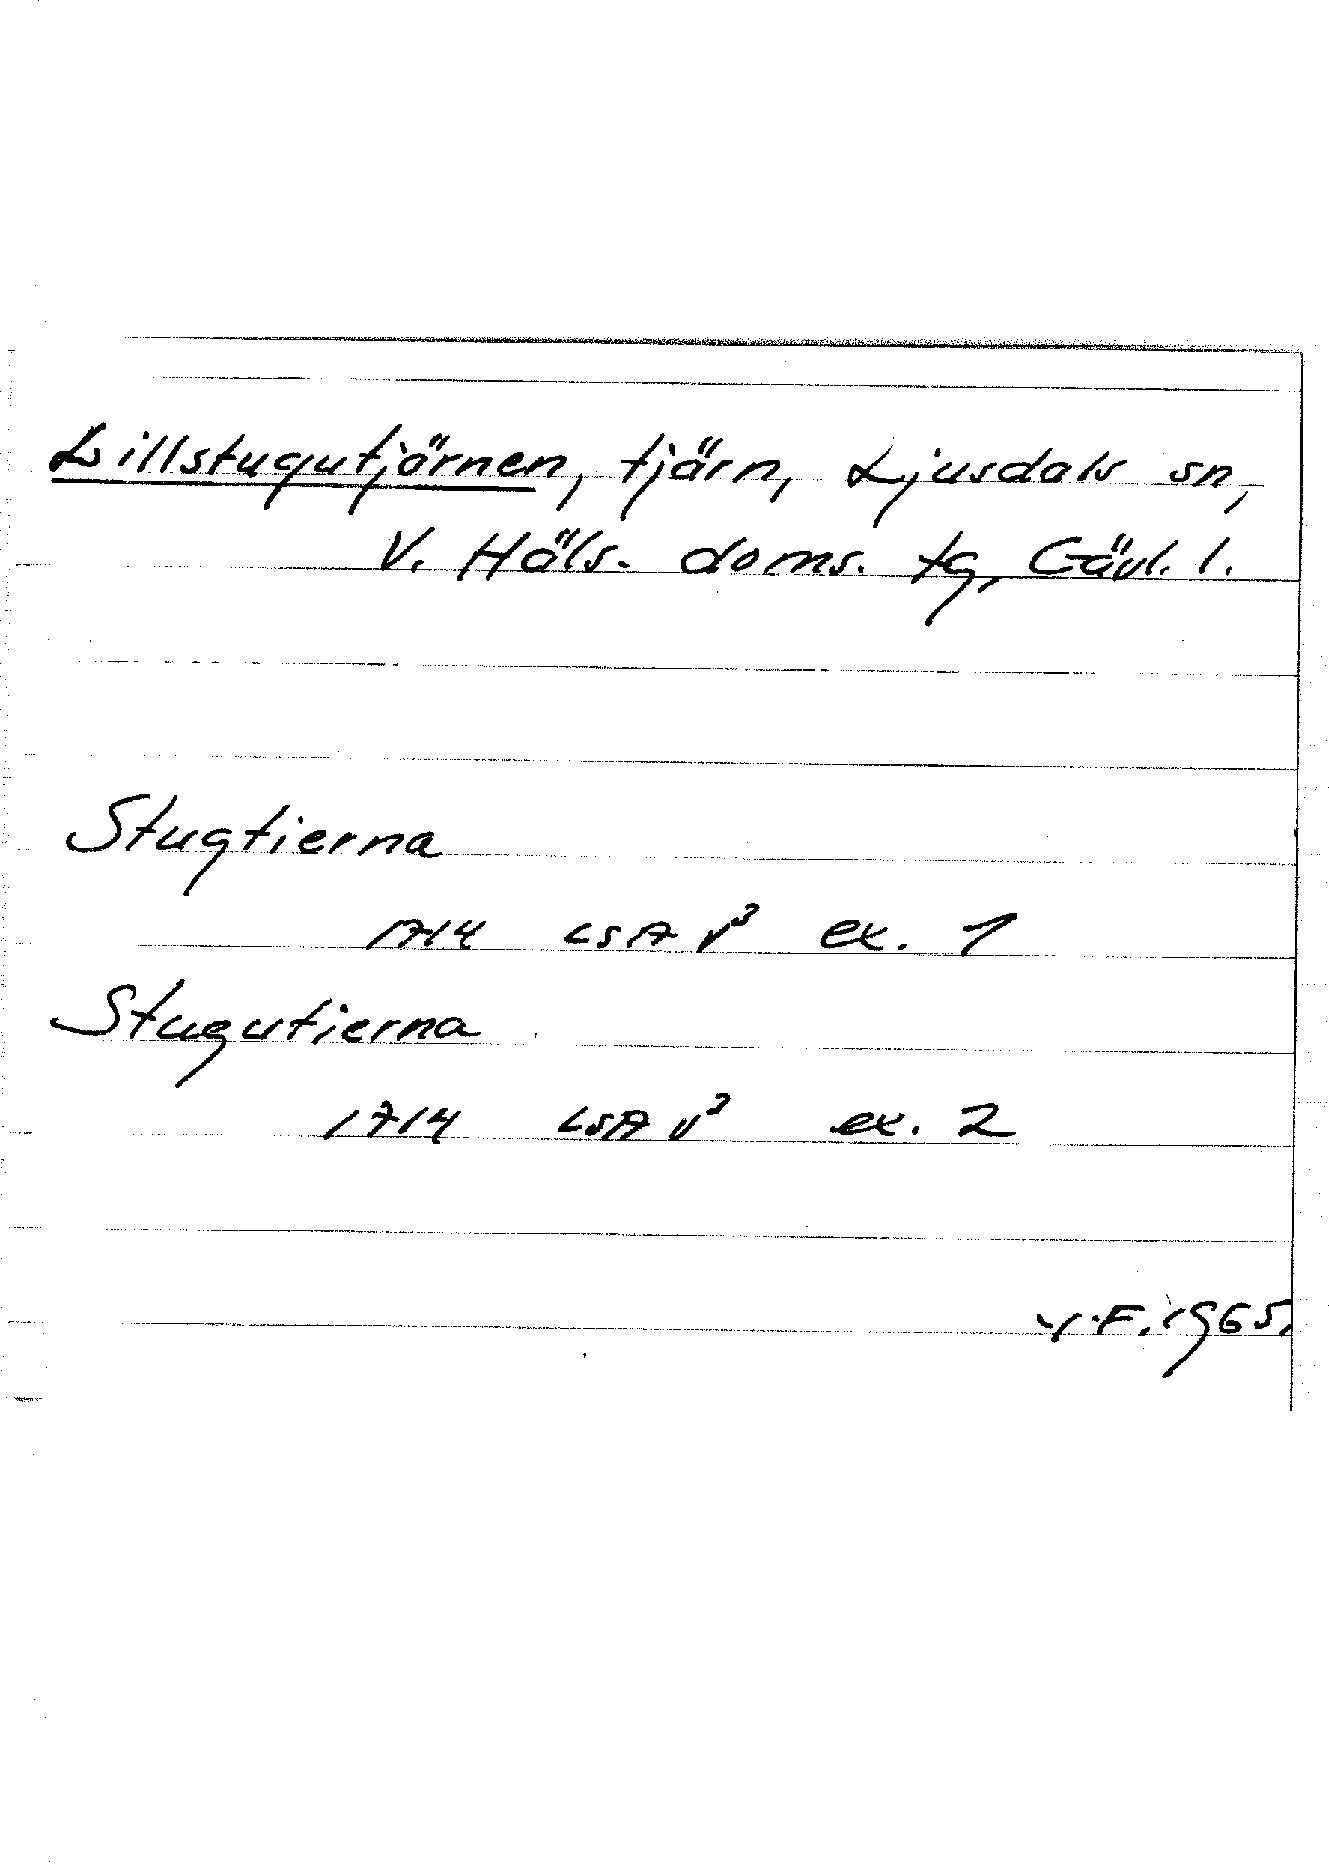 Lillstugutjärnen, tjärn, Ljusdals sn,
V. Häls. doms. tg, Gävl. l.
Stugtierna
1714 LSA V³ ex. 1
Stugutierna
1714 LSA V³ ex. 2
F. 1965.